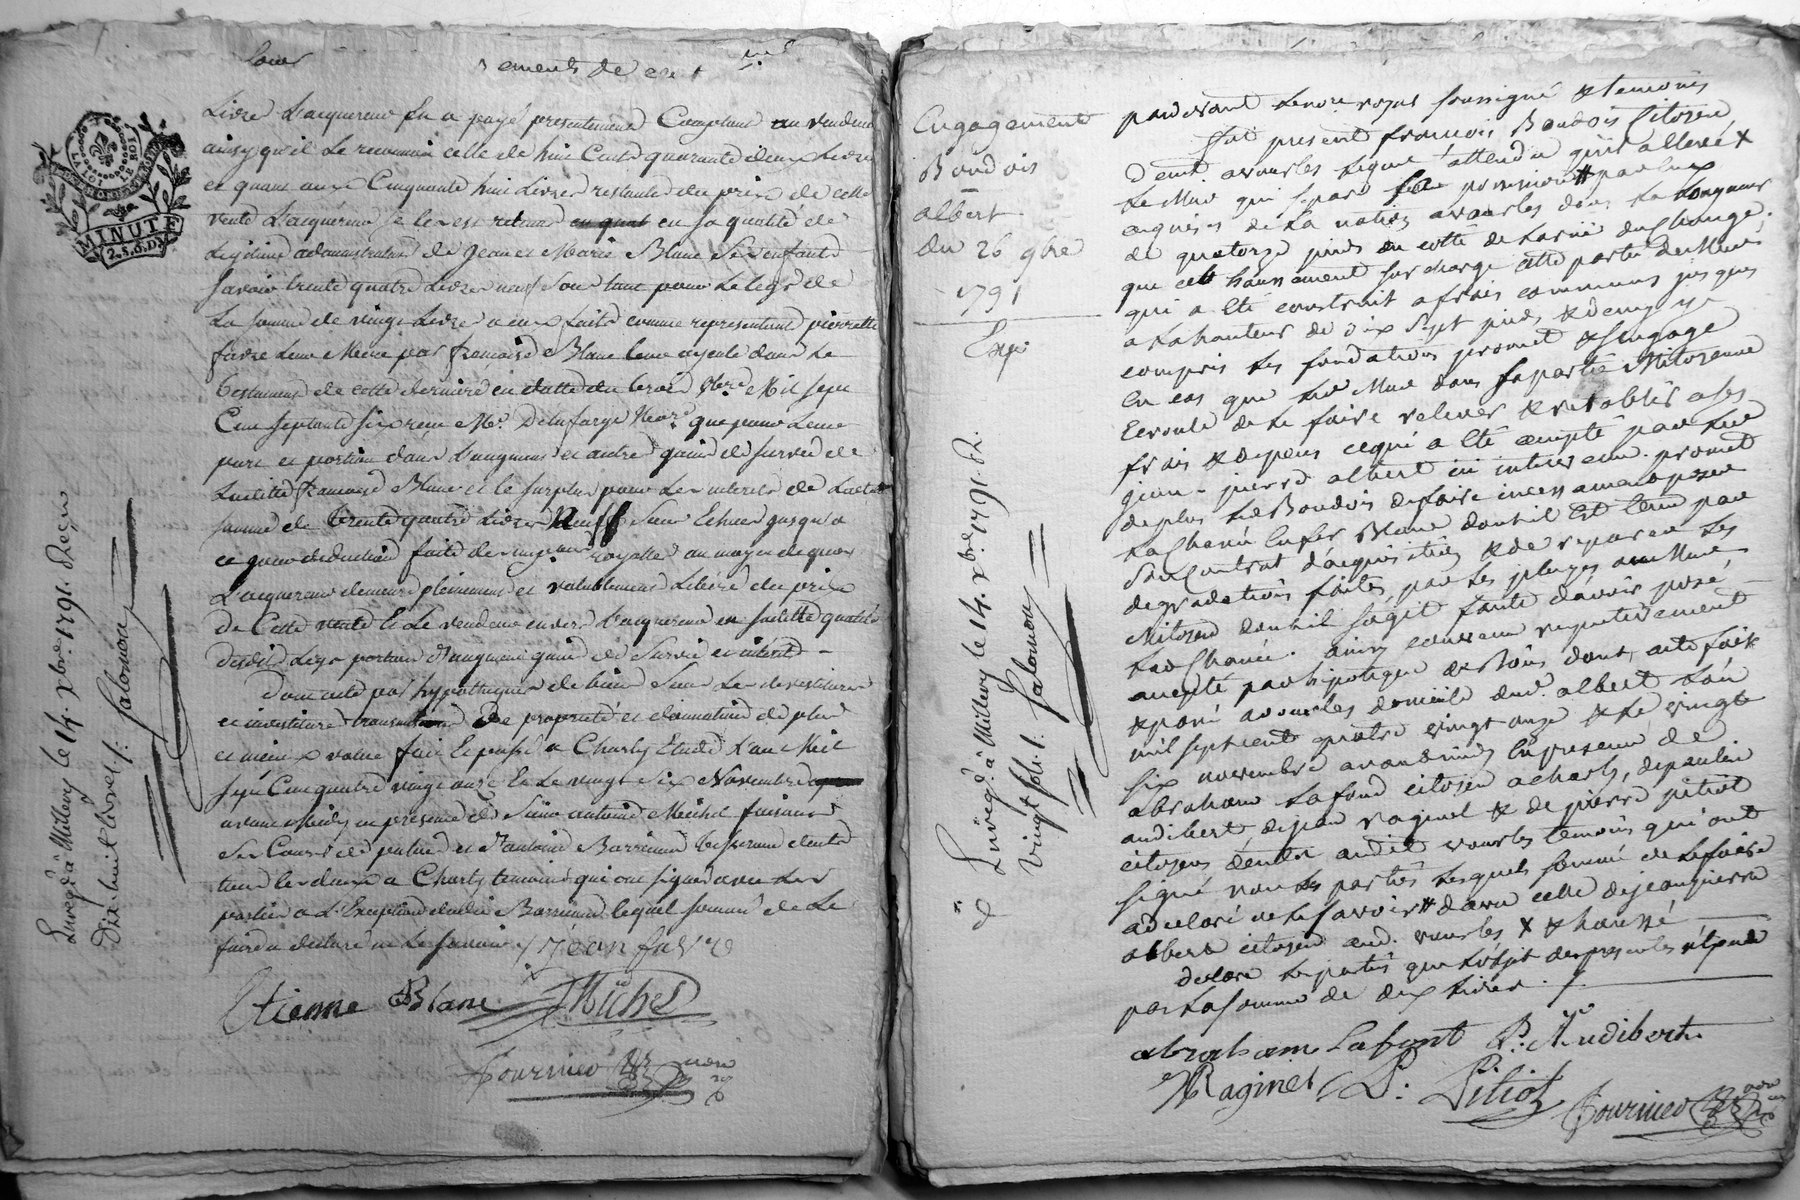 ements de
LA LOI ET LE ROI
MINUTE
2.S.6.D.
Livre L'acquereur en a payé presentement Comptant au vendeur
ainsy qu'il Le reconnoit celle de huit Cents quarante deux Livres
et quant aux Cinquante huit Livres restantes du prix de cette
vente L'acquereur se les est retenu en quat en sa qualité de
Legitime administrateur de Jean et Marie Blanc Ses enfants
savoir trente quatre Livres neuf Sous tant pour Le legs de
La somme de vingt Livres a eux faits comme representant pierrette
favre Leur Mere par francoise Blanc leur ayeule dans Le
testament de cette derniere en datte du trois Mil sept
Cent septante six recu Me Delafarge Nore que pour Leur
part et portion dans L'augment et autre gains de survie de
Laditte francoise Blanc et le surplus pour Les interets de Laditte
somme de trente quatre Livres Neuff Sous Echus jusqu'a
ce jour deduction faite des impons royalles au moyen de quoy
L'acquereur demeure pleinement et valablement Libéré du prix
De Cette vente Et Le vendeur envers L'acquereur en saditte qualité
desdits Legs portion d'augment gains de Survie et interets
Dont acte par hypotheques de biens Sous Les devestitures
et investiture transmission De proprieté et donnation de plus
et mieux value fait Et passé a Charly Etude L'an Mil
sept Cent quatre vingt onze Et Le vingt Six Novembre
avant Midy en presence de Sieur antoine Michel faisant
Ses Cours de pratique et d'antoine Barrimond
tous les deux a Charly temoins qui ont signé avec Les
parties a L'Exception dudit Barrimond lequel sommé de Le
faire a declaré ne Le savoir Jean favre
Etienne Blanc Michel
Fournier nore
Enregé à Millery le 14. xbre. 1791. Reçu
Dix huit livres. Salomon
Engagement
Baudois
albert
du 26 9bre
1791
Expé
pardevant Lenore royal soussigné & temoins
fut present francois Baudois Citoyen
demt. a vourles Lequel attendu qu'il a elevé X
Le Mur qui separe Les possessions # par eux
acquises de La nation a vourles dans La Longueur
de quatorze pieds du cotté de Larue du Change.
que cett haussement surcharge cette partie de Mur
qui a été construit a frais communs jusques
a La hauteur de dix Sept pieds & demy y
compris Les fondations promet & s'engage
En cas que Led Mur dans sa partie Mitoyenne
Ecroule de Le faire relever & retablir a ses
frais & depens cequi a été accepté par Led
Jean-pierre albert ici intervenu. promet
de plus Led Baudois de faire incessamment poser
La Chanée En fer Blanc dont il Est tenu par
Son Contrat d'acquisition & de reparer Les
degradations faites par Les pluyes au Mur
Mitoyen dont il sagit faute d'avoir posé
Lad Chanée. ainsi convenu respectivement
accepté par hipoteque de Biens dont acte fait
& passé a vourles domicile dud. albert L'an
mil sept cent quatre vingt onze & Le vingt
six novembre avant midy En presence de
abraham Lafond citoyen a charly, de paulin
audibert, de jean raginel & de pierre pitiot
citoyens dudit vourles temoins qui ont
signé non Les parties Lesquels sommé de Le faire
a declaré ne Le savoir # davec celle de jean pierre
albert citoyen aud. vourles X & haussé
declare Les parties que L'objet des presentes n'Excede
pas La somme de dix Livres.
abraham Lafont P. Audibert
Raginel P. Pitiot Fournier nore
Enregé. à Millery le 14. xbre. 1791. R.
vingt sols. Salomon